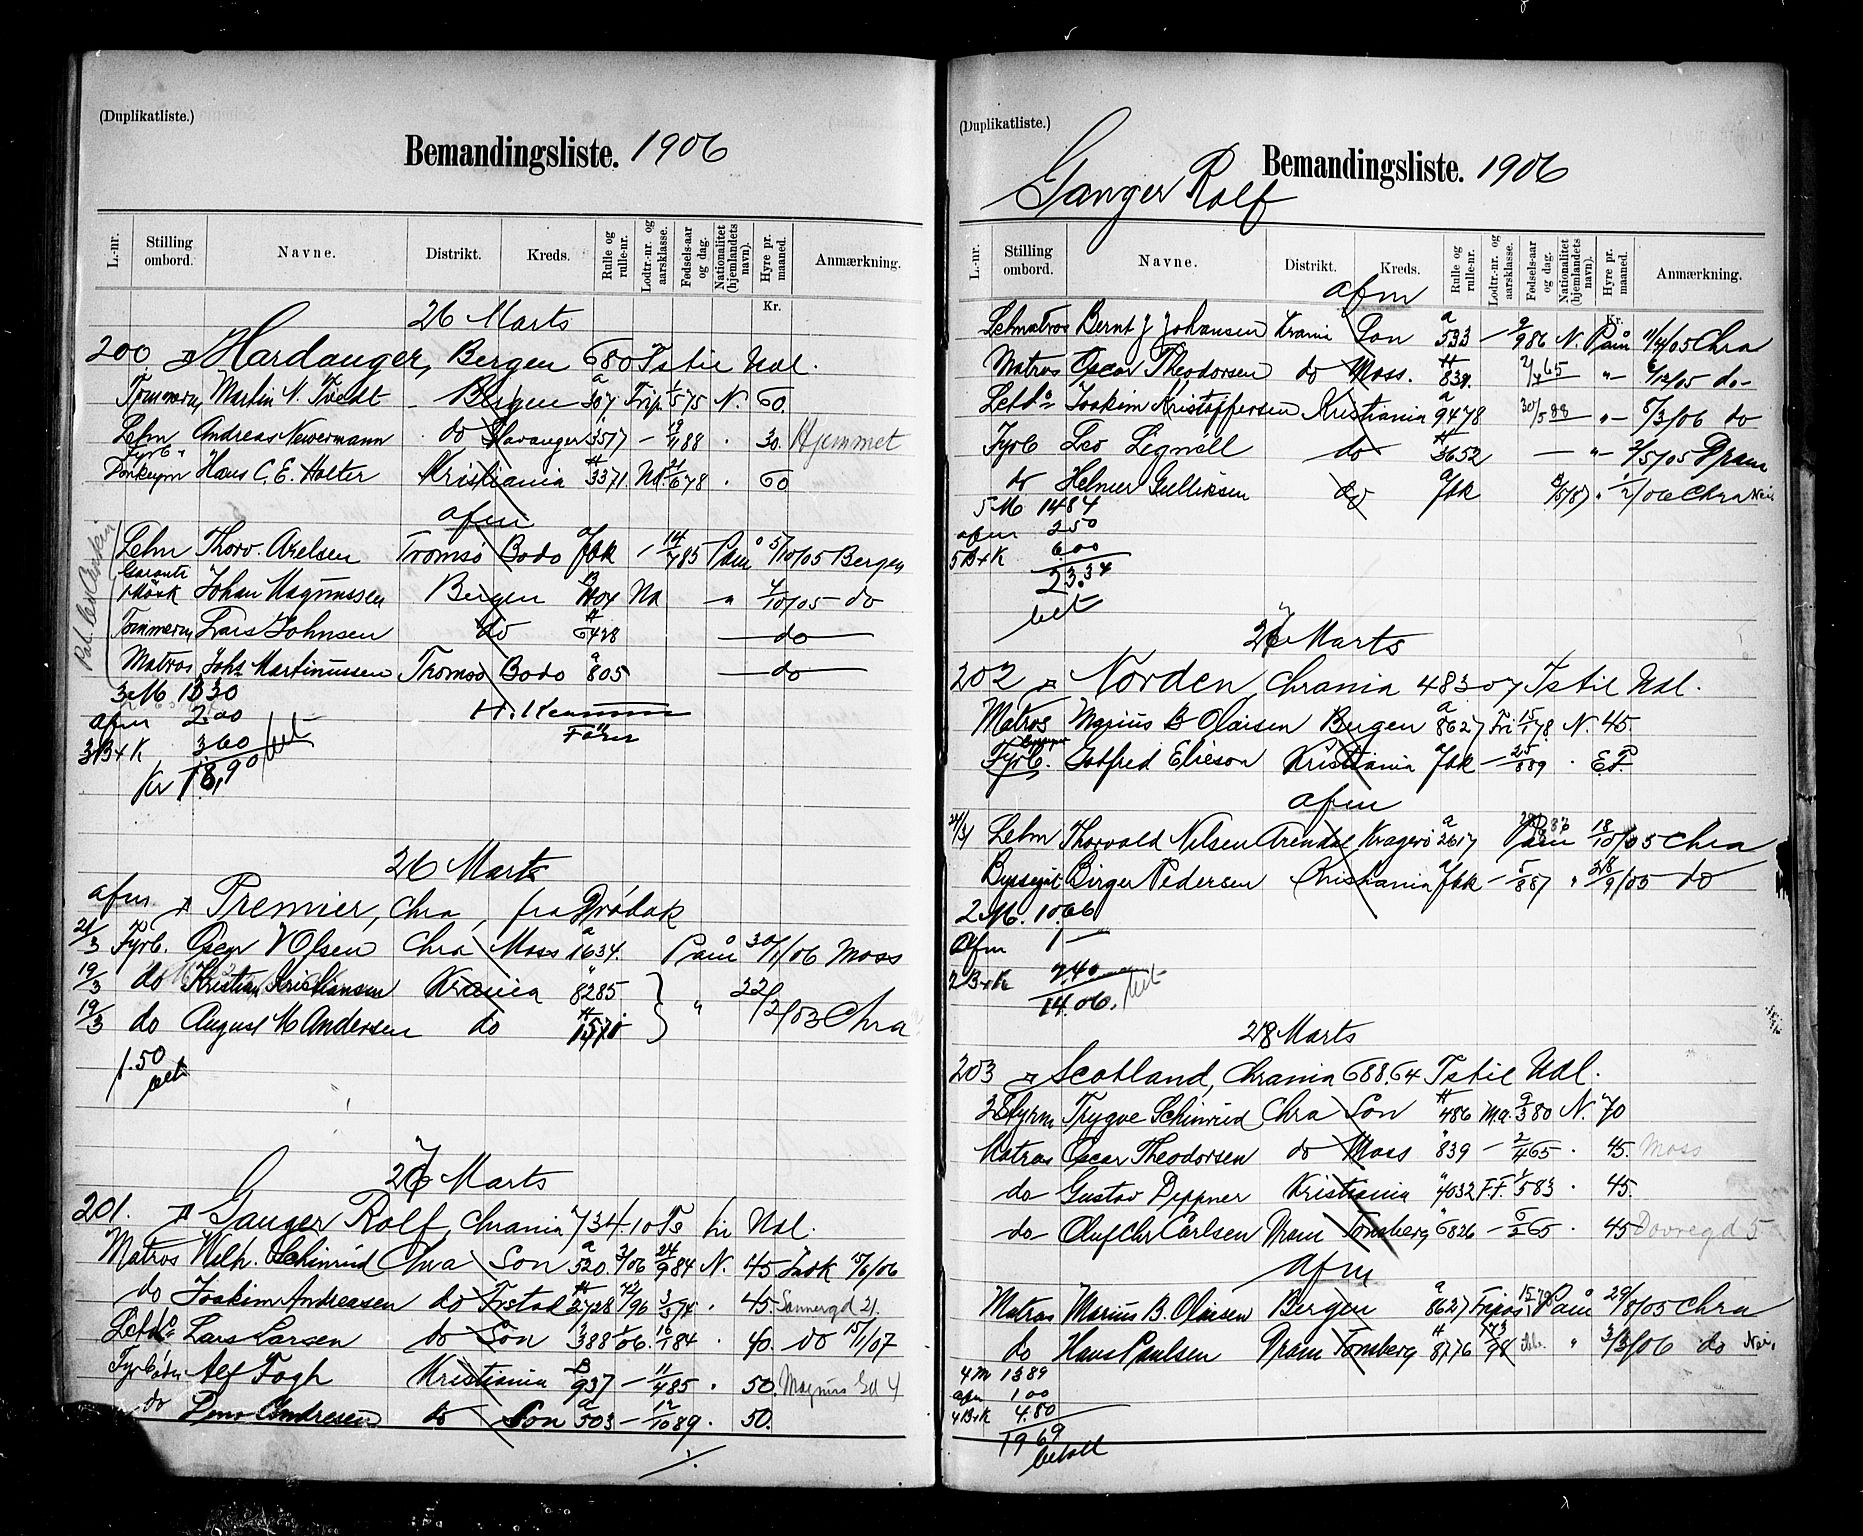 (Duplikatliste.)
Bemandingsliste. 1906
L.-nr.
Stilling ombord.
Navne.
Distrikt.
Kreds.
Rulle og rulle-nr.
Lodtr.-nr. og aarsklasse.
Fødsels-aar og dag.
Nationalitet (hjemlandets navn).
Hyre pr. maaned.
Anmærkning.
Kr.
26 Marts
200 Hardanger, Bergen 680 Ts til Udl.
Tømmerm, Martin N. Tvedt Bergen a 307 Frip. 1/5 75 N. 60.
Letm Andreas Newermann do Stavanger 3517 - 88 30. Hjemmet
Fyrb.
Donkeym Hans C. E. Holter Kristiania 3371 Nd 78 60
afm
Letm Thorv. Axelsen Tromsø Bodø fbk - 14/7 85 Påm 5/10/05 Bergen
Johan Magnussen Bergen Nd " 4/10/05 do
Tømmerm Lars Johnsen do 6428 do
Matros Johs Martinussen Tromsø Bodø a 805 do
3 M 13 30
afm 2.00
3 B+K 3 60
Kr 18,90 bet
26 Marts
afm Premier, Chra, fra Drøbak
21/3 Fyrb. Oscar V Olsen Chra Moss a 1634. Påm 30/1/06 Moss
19/3 do Kristian Kristiansen Krania " 8285
19/3 do August M Andersen do 1571 " 22/2/03 Chra
1.50 bet
27 Marts
201. Ganger Rolf, Chrania 734.10 Ts til Udl.
Matros Wilh. Schinrud Chra Son a 520. 3/06 24/9 84 N. 45 Indk 15/6/06
do Joakim Andreasen do Frstad 2728 72/96 3/5 74 . 45. Sannergd 21.
Letdo Lars Larsen do Son 388 16/1 84 . 40. do 15/1/07
Fyrbøder Alf Fogh Kristiania 937 - 11/4 85 . 50. Magnus Gd 4
do Andresen do Son a 503 - 12/10 89 . 50.
(Duplikatliste.)
Bemandingsliste. 1906
Ganger Rolf
L.-nr.
Stilling ombord.
Navne.
Distrikt.
Kreds.
Rulle og rulle-nr.
Lodtr.-nr. og aarsklasse.
Fødsels-aar og dag.
Nationalitet (hjemlandets navn).
Hyre pr. maaned.
Anmærkning.
Kr.
afm
Letmatros Bernt J Johansen Krania Son a 533 - 9/9 86 N. Påm 11/4/05 Chra
Matros Oscar Theodorsen do Moss. 839. 2/4 65 "- /12/05 do-
Letdo Joakim Kristoffersen Kristiania a 9478 30/5 88 "- 8/3/06 do
Fyrb Leo Lignell do 3652 — "- 2/5/05 Dram
do Helmer Gulliksen do fbk " 1/2/06 Chra Nei
5 M 14 84
afm 2 50
5 B+K 6 00
23.34
bet
27 Marts
202 Norden, Chrania 483.07 Ts til Udl.
Matros Marius B Olaisen Bergen a 8627 Fri 15/1 78 N. 45.
Fyrb. Gotfred Elieson Kristiania fbk - 25/8 89 .
afm
21/3 Letm Thorvald Nilsen Arendal Kragerø a 2617 Påm 18/10/05 Chra
Byssegut Birger Pedersen Christiania fbk - 5/8 87 " 28/9/05 do
2 M. 10.66
afm 1 —
2 B+K 2.40
14.06. bet
28 Marts
203 Scotland, Chrania 688.64 Ts til Udl.
2 Styrm Trygve Schinrud Chra Son 486 Ma. 9/3 80 N. 70
Matros Oscar Theodorsen do Moss " 839 - 2/4 65 . 45. Moss
do Gustav Deppner Kristiania " 4032 F.F. 1/5 83 . 45.
do Oluf Chr Carlsen Dram Tønsberg " 6826 - 65 . 45 Dovregd 5
afm
Matros Marius B. Olaisen Bergen a 8627 15/1 79 Påm 29/8/05 Chra
do Hans Paulsen Dram Tønsberg 8776 173/98 " 3/3/06 do Nei.
4 M 13 89
afm 1 00
4 B+K 4.80
19 69
betalt